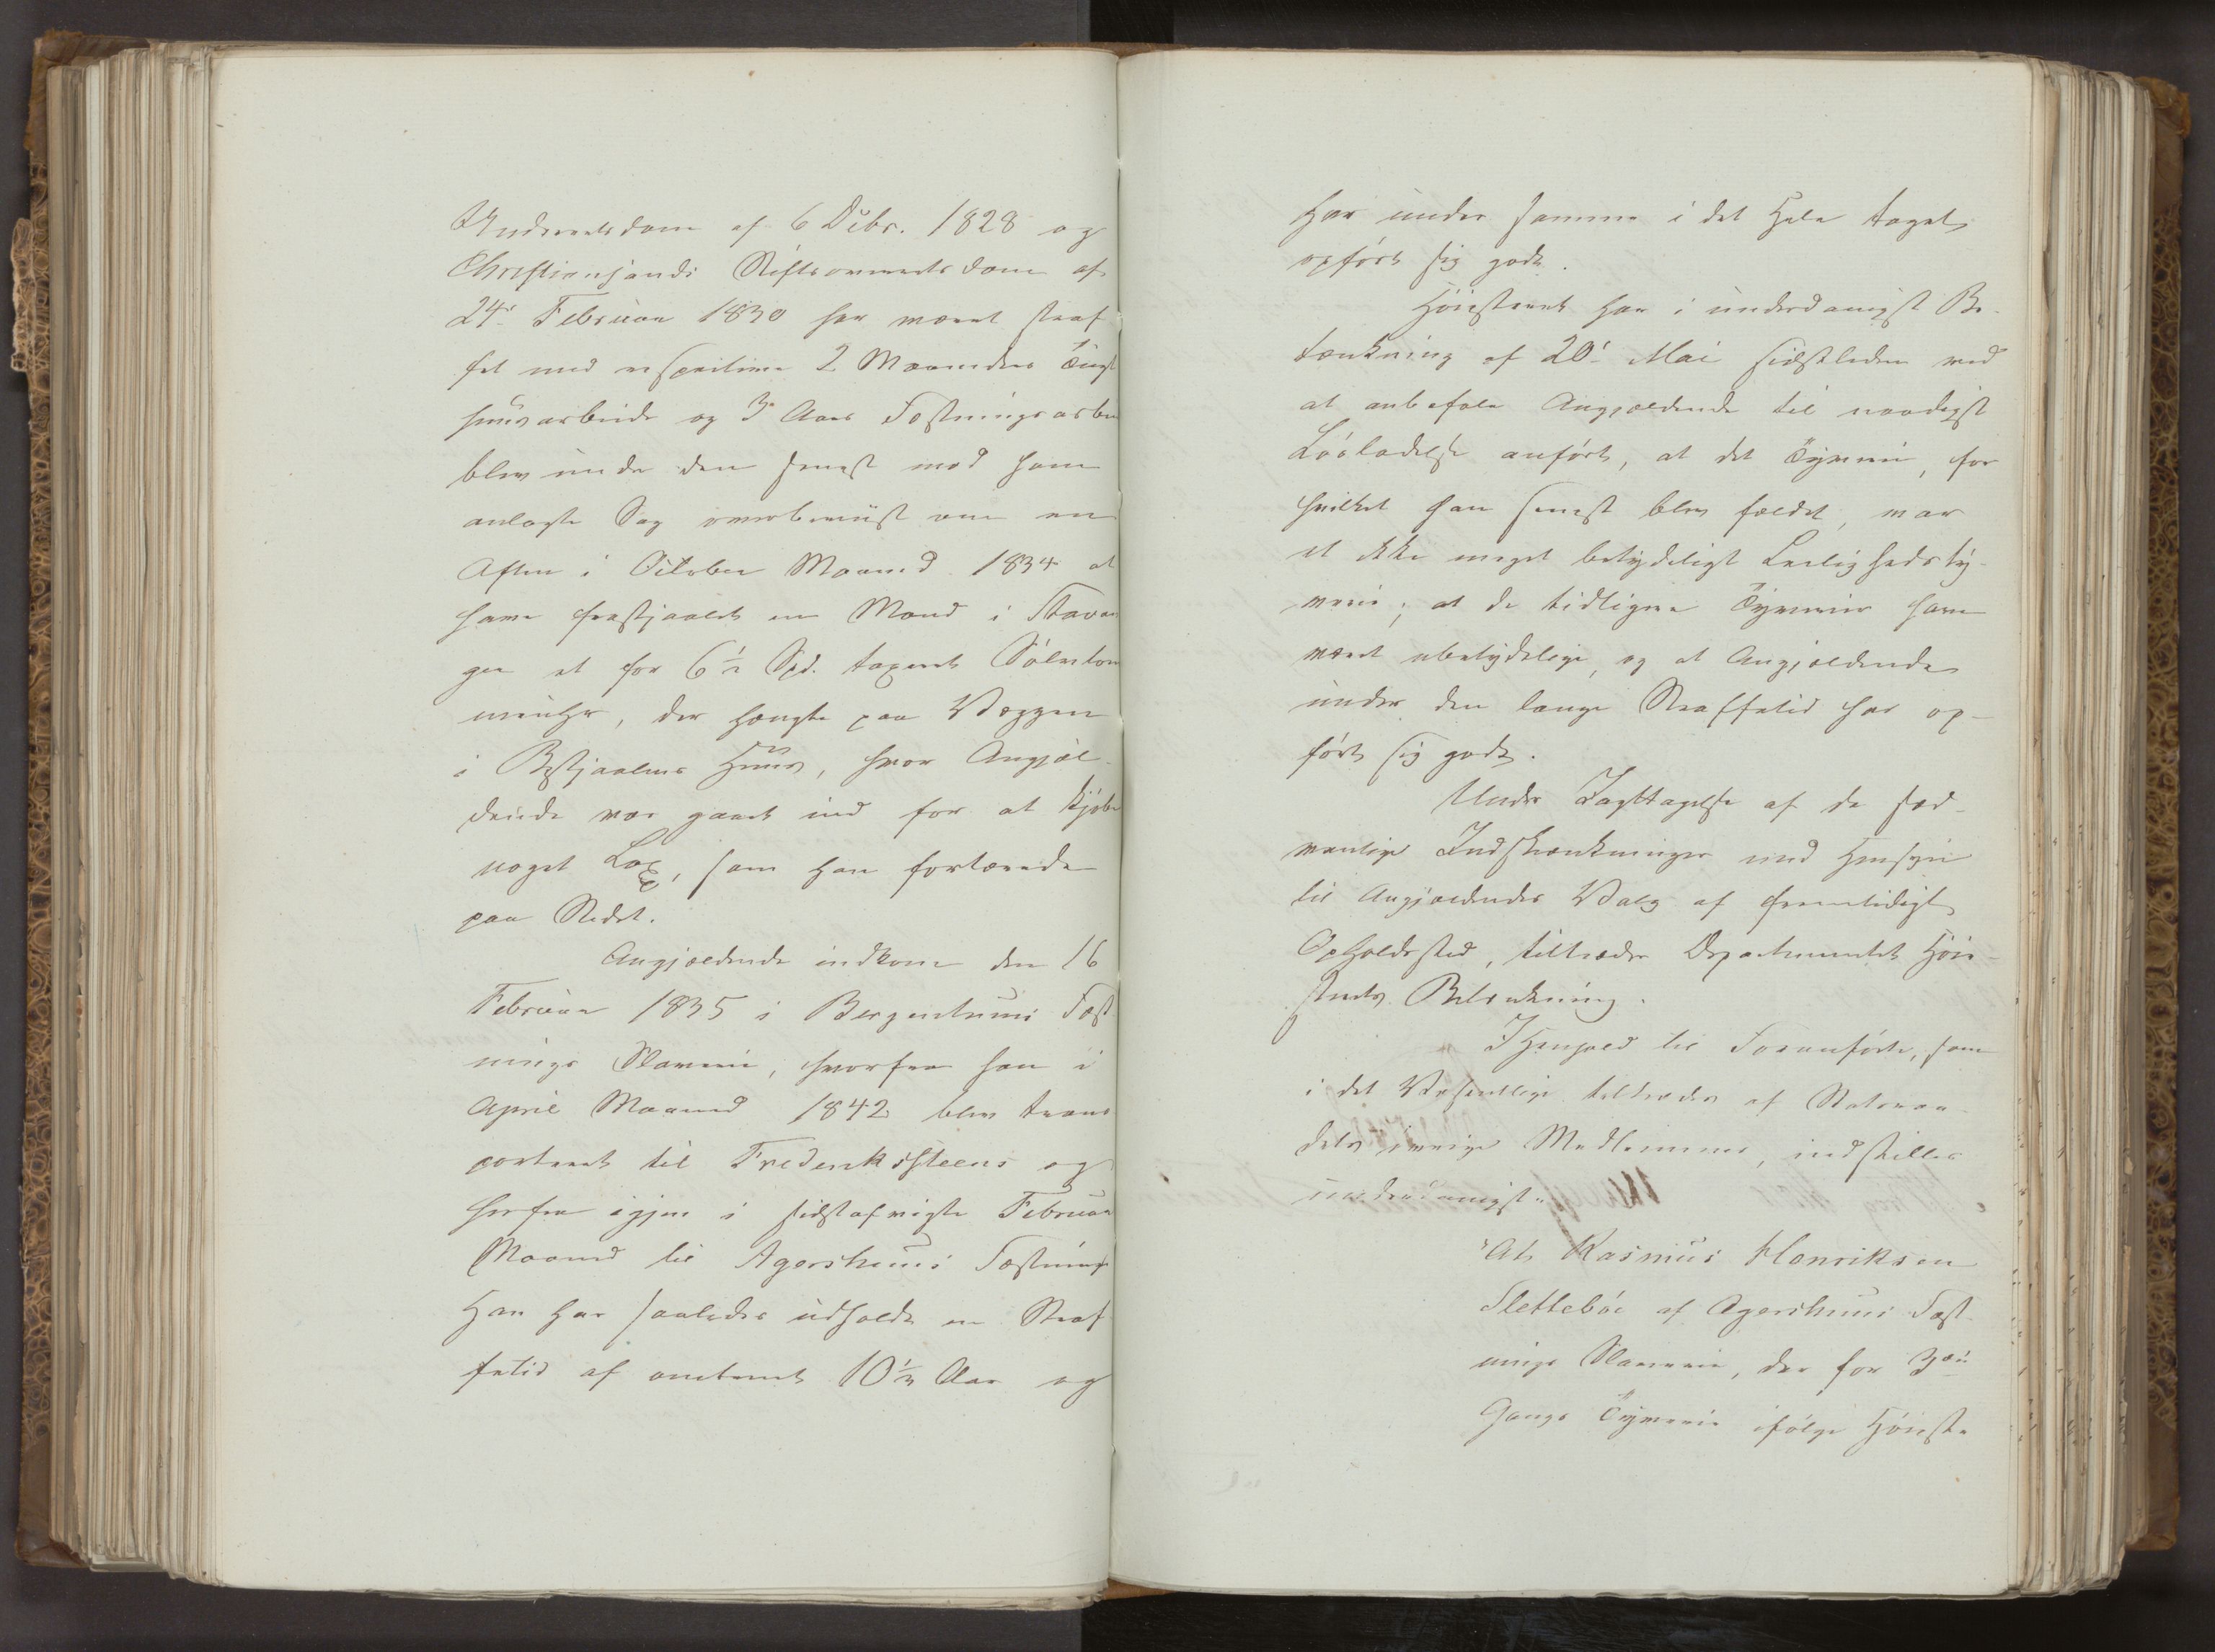 Underretsdom af 6 Decbr. 1828 og
Christiansands Stiftsoverretsdom af
24. Februar 1830 har været straf-
fet med respective 2 Maaneders Tugt
huusarbeide og 3 Aars Fæstningsarbei
blev under den senest mod ham
anlagte Sag overbeviist om en
Aften i October Maaned 1834 at
have frastjaalet en Mand i Stavan
ger et for 6½ Spd. taxeret Sølvlom
meuhr, der hængte paa Væggen
i Bestjaalnes Huus, hvor Angjæl-
dende var gaaet ind for at kjøbe
noget Lax, som han fortærede
paa Stedet.
Angjældende indkom den 16
Februar 1835 i Bergenhuus Fæst
nings Slaverie, hvorfra han i
April Maaned 1842 blev trans
porteret til Frederikssteens og
herfra igjen i sidstafvigte Februar
Maaned til Agershuus Fæstning
Han har saaledes udholdt en Straf-
fetid af omtrent 10½ Aar og
har under samme i det Hele taget
opført sig godt.
Høiesteret har i underdanigst Be-
tænkning af 20. Mai sidstleden ved
at anbefale Angjældende til naadigst
Løsladelse anført, at det Tyverie, for
hvilket han senest blev fældet, var
et ikke meget betydeligt Leilighedsty-
verie; at de tidligere Tyverier have
været ubetydelige, og at Angjældende
under den lange Straffetid har op-
ført sig godt.
Under Iagttagelse af de sæd-
vanlige Indskrænkninger med Hensyn
til Angjældendes Valg af fremtidigt
Opholdssted, tiltræder Departementet Høie-
sterets Betænkning.
I Henhold til Foranførte, som
i det Væsentlige tiltrædes af Statsraa-
dets øvrige Medlemmer, indstilles
underdanigst:
"At Rasmus Henriksen
Slettebøe af Agershuus Fæst-
nings Slaverie, der for 3die
Gangs Tyverie ifølge Høieste